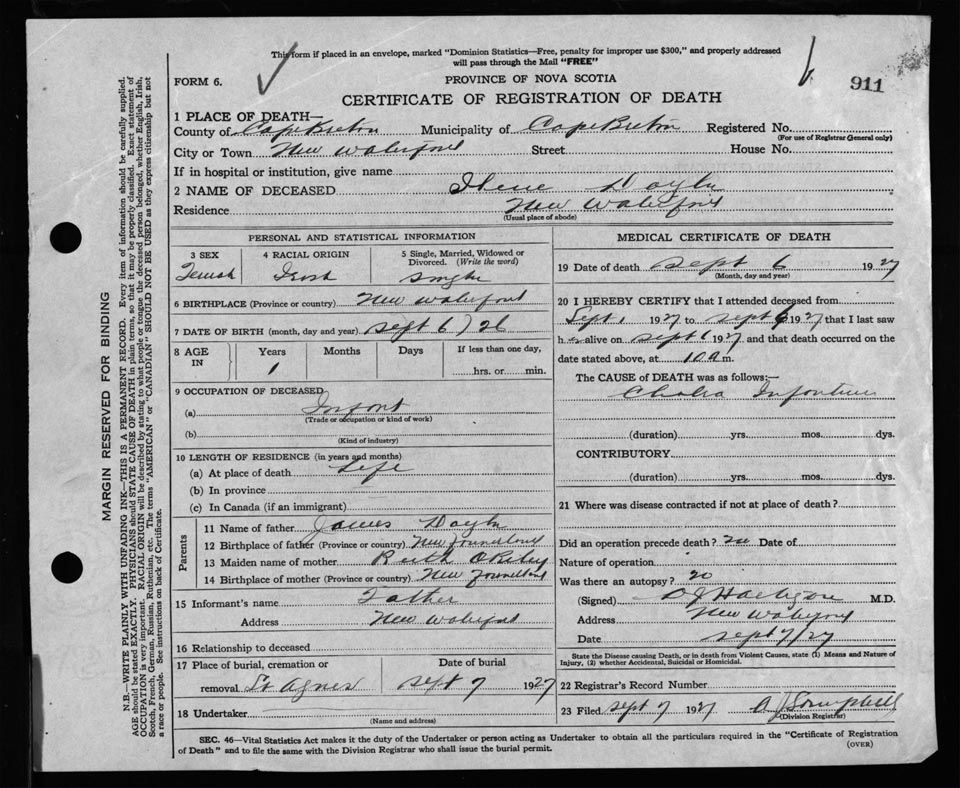 This form if placed in an envelope, marked "Dominion Statistics—Free, penalty for improper use $300," and properly addressed
will pass through the Mail "FREE"
FORM 6.
PROVINCE OF NOVA SCOTIA
911
CERTIFICATE OF REGISTRATION OF DEATH
1 PLACE OF DEATH—
County of Cape Breton Municipality of Cape Breton Registered No.
(For use of Registrar General only)
City or Town New Waterford Street House No.
If in hospital or institution, give name
2 NAME OF DECEASED Irene Doyle
Residence New Waterford
(Usual place of abode)
PERSONAL AND STATISTICAL INFORMATION
3 SEX 4 RACIAL ORIGIN 5 Single, Married, Widowed or
Divorced. (Write the word)
Female Irish Single
6 BIRTHPLACE (Province or country) New Waterford
7 DATE OF BIRTH (month, day and year) Sept 6 / 26
8 AGE IN Years Months Days If less than one day,
1 hrs. or min.
9 OCCUPATION OF DECEASED
(a) Infant
(Trade or occupation or kind of work)
(b)
(Kind of industry)
10 LENGTH OF RESIDENCE (in years and months)
(a) At place of death Life
(b) In province
(c) In Canada (if an immigrant)
Parents
11 Name of father James Doyle
12 Birthplace of father (Province or country) New Foundland
13 Maiden name of mother ORiley
14 Birthplace of mother (Province or country) New Foundland
15 Informant's name Father
Address New Waterford
16 Relationship to deceased
17 Place of burial, cremation or Date of burial
removal St Agnes Sept 7 1927
18 Undertaker
(Name and address)
MEDICAL CERTIFICATE OF DEATH
19 Date of death Sept 6 1927
(Month, day and year)
20 I HEREBY CERTIFY that I attended deceased from
Sept 1 1927 to Sept 6 1927 that I last saw
h alive on Sept 6 1927 and that death occurred on the
date stated above, at 10 a m.
The CAUSE of DEATH was as follows:—
Cholera Infantum
(duration) yrs. mos. dys.
CONTRIBUTORY
(duration) yrs. mos. dys.
21 Where was disease contracted if not at place of death?
Did an operation precede death? no Date of
Nature of operation
Was there an autopsy? no
(Signed) M.D.
Address New Waterford
Date Sept 7/27
State the Disease causing Death, or in death from Violent Causes, state (1) Means and Nature of
Injury, (2) whether Accidental, Suicidal or Homicidal.
22 Registrar's Record Number
23 Filed Sept 7 1927 Campbell
(Division Registrar)
SEC. 46—Vital Statistics Act makes it the duty of the Undertaker or person acting as Undertaker to obtain all the particulars required in the "Certificate of Registration
of Death" and to file the same with the Division Registrar who shall issue the burial permit.
(OVER)
MARGIN RESERVED FOR BINDING
N.B.—WRITE PLAINLY WITH UNFADING INK—THIS IS A PERMANENT RECORD. Every item of information should be carefully supplied.
AGE should be stated EXACTLY. PHYSICIANS should STATE CAUSE OF DEATH in plain terms, so that it may be properly classified. Exact statement of
OCCUPATION is very important. RACIAL ORIGIN will be described by stating to what people or tongue the deceased person belonged, whether English, Irish,
Scotch, French, German, Russian, Ruthenian, etc. The terms "AMERICAN" or "CANADIAN" SHOULD NOT BE USED as they express citizenship but not
a race or people. See instructions on back of Certificate.